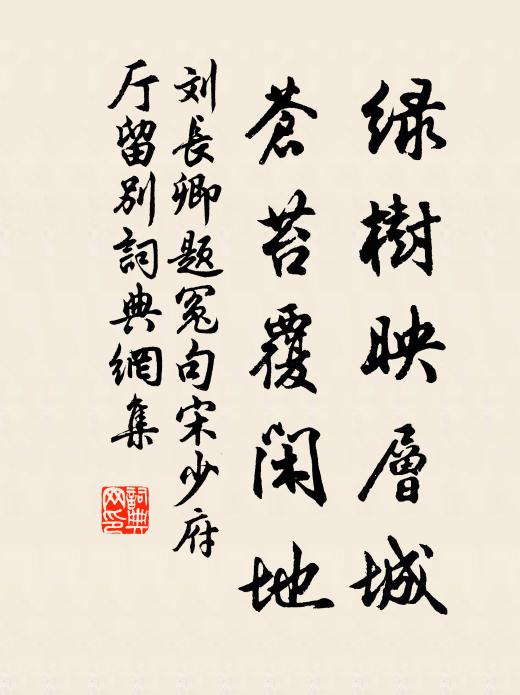 绿樹映層城
蒼苔覆闲地
刘長卿题冤句宋少府
厅留别詞典網集
詞典网印